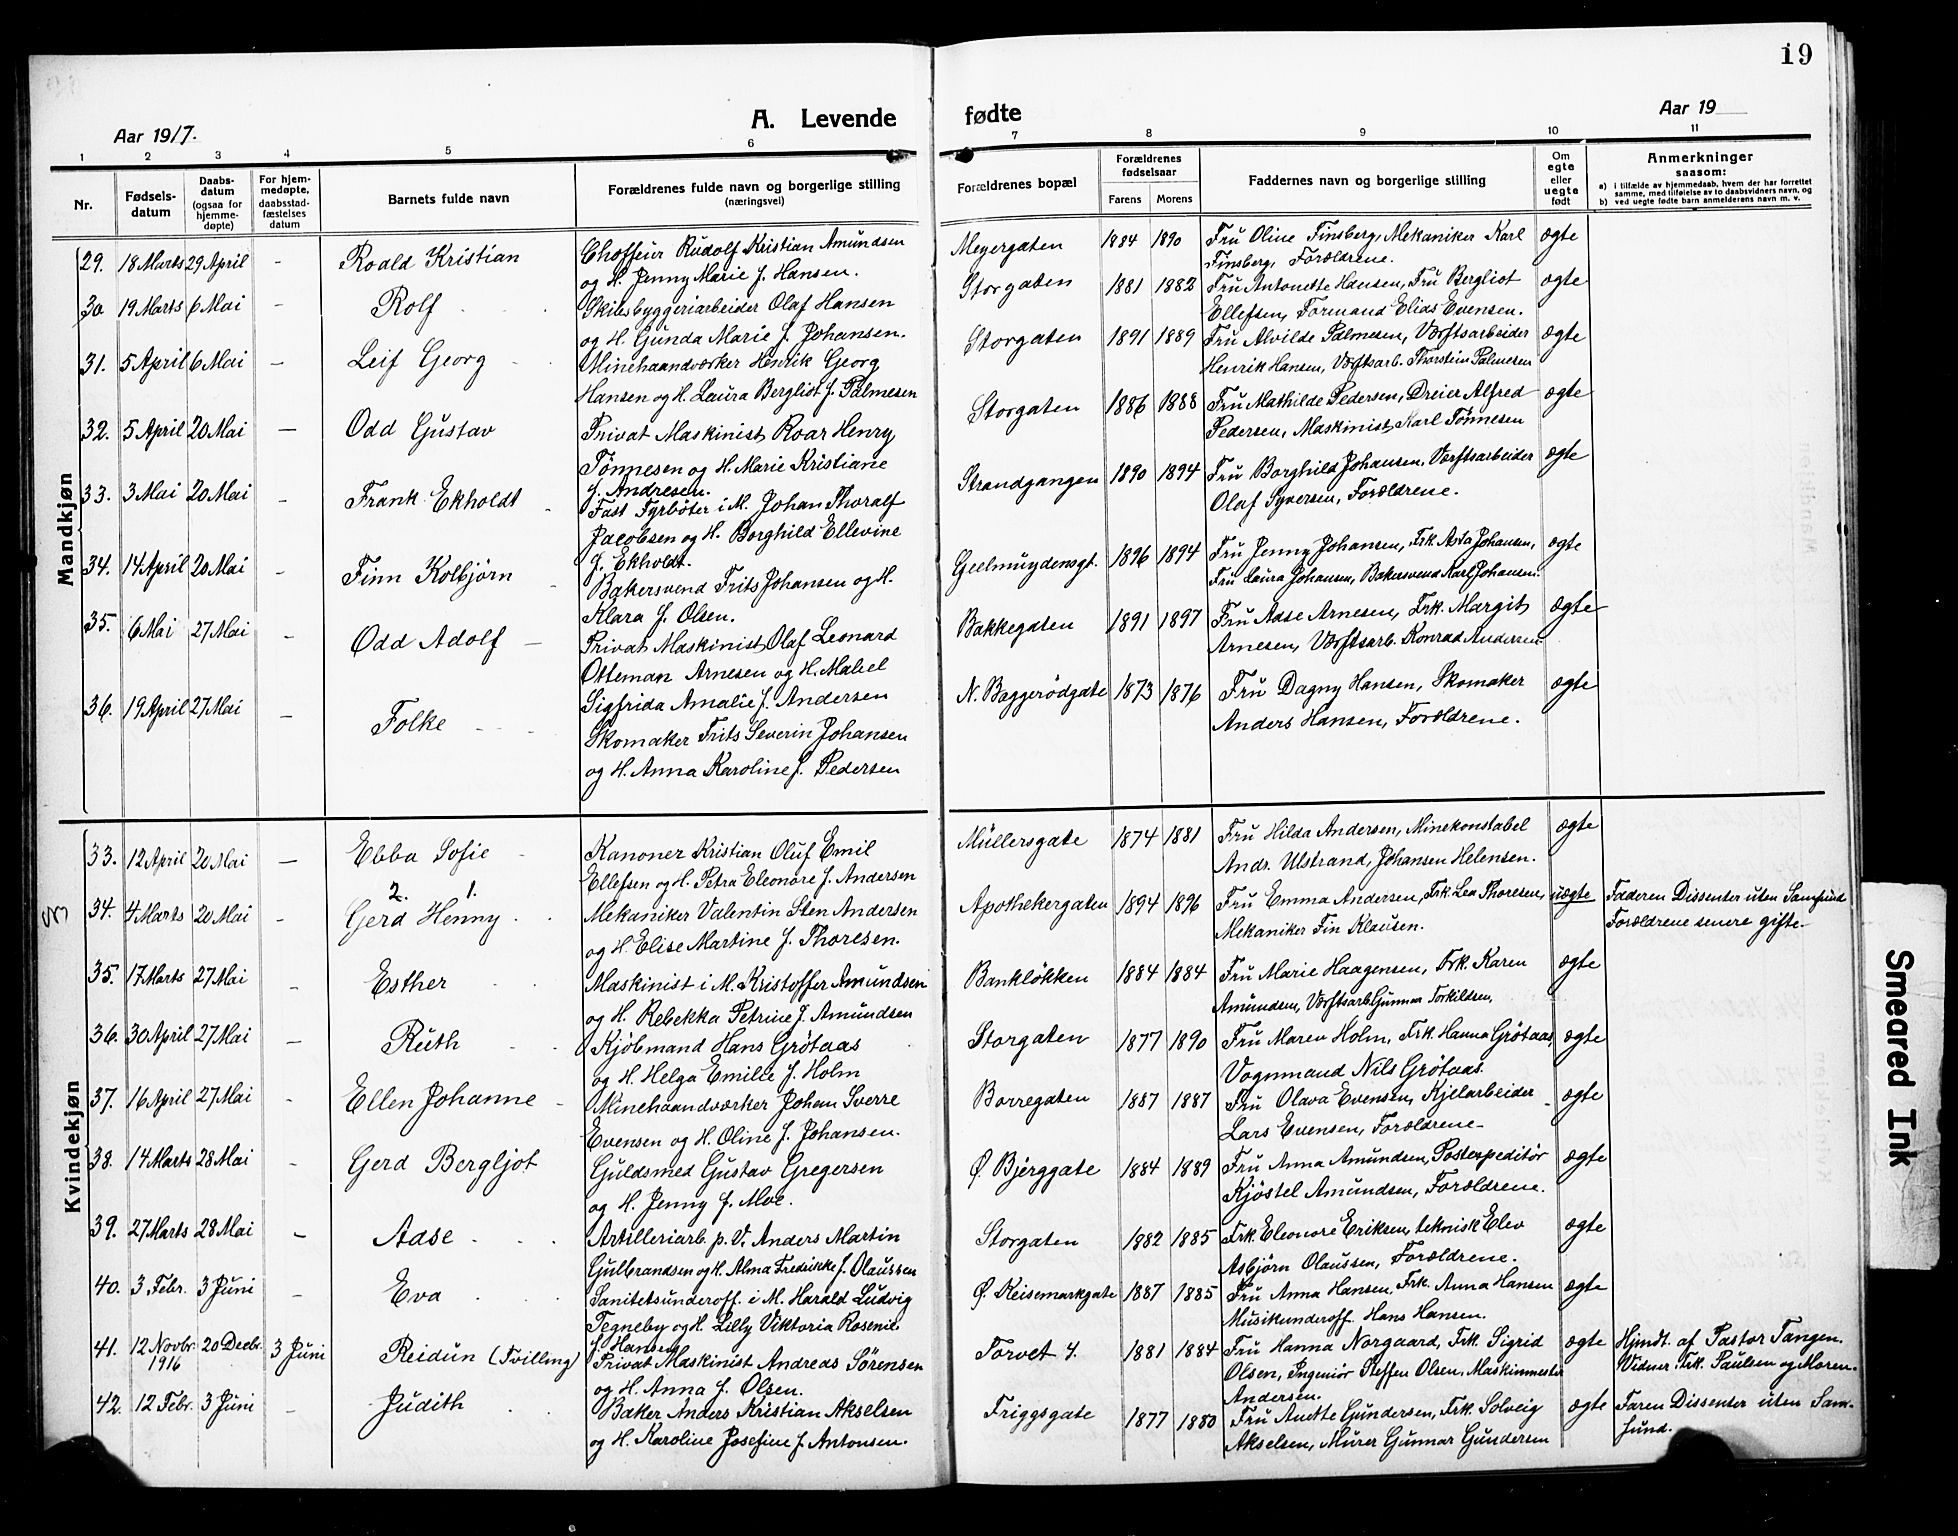 19
Aar 1917.
A. Levende fødte
Aar 19
1 2 3 4 5 6 7 8 9 10 11
Nr.
Fødsels-
datum
Daabs-
datum
(ogsaa for
hjemme-
døpte)
For hjem-
medøpte,
daabsstad-
fæstelses
datum
Barnets fulde navn
Forældrenes fulde navn og borgerlige stilling
(næringsvei)
Forældrenes bopæl
Forældrenes
fødselsaar
Farens Morens
Faddernes navn og borgerlige stilling
Om
egte
eller
uegte
født
Anmerkninger
saasom:
a) i tilfælde av hjemmedaab, hvem der har forrettet
samme, med tilføielse av to daabsvidners navn, og
b) ved uegte fødte barn anmelderens navn m. v.
Mandkjøn
29. 18 Marts 29 April - Roald Kristian
Choffeur Rudolf Kristian Amundsen
og H. Jenny Marie f. Hansen.
Meyergaten 1884 1890
Fru Oline Finsberg, Mekaniker Karl
Finsberg, Forældrene.
ægte
30 19 Marts 6 Mai - Rolf
Skibsbyggeriarbeider Olaf Hansen
og H. Gunda Marie f. Johansen.
Storgaten 1881 1882
Fru Antonette Hansen, Fru Bergliot
Ellefsen, Formand Elias Evensen.
ægte
31. 5 April 6 Mai - Leif Georg
Minehaandværker Henrik Georg
Hansen og H. Laura Bergliot f. Palmesen
Storgaten 1891 1889
Fru Alvilde Palmesen, Værftsarbeider
Henrik Hansen, Værftsarb. Thorstein Palmesen
ægte
32. 5 April 20 Mai - Odd Gustav
Privat Maskinist Roar Henry
Tønnesen og H. Marie Kristiane
f. Andresen.
Storgaten 1886 1888
Fru Mathilde Pedersen, Dreier Alfred
Pedersen, Maskinist Karl Tønnesen
ægte
33. 3 Mai 20 Mai - Frank Ekholdt
Fast Fyrbøter i M. Johan Thoralf
Jacobsen og H. Borghild Ellevine
f. Ekholdt.
Strandgangen 1890 1894
Fru Borghild Johansen, Værftsarbeider
Olaf Syversen, Forældrene.
ægte
34. 14 April 20 Mai - Finn Kolbjørn
Bakersvend Frits Johansen og H.
Klara f. Olsen.
Geelmuydensgt. 1896 1894
Fru Jenny Johansen, Frk. Asta Johansen,
Fru Laura Johansen, Bakersvend Karl Johansen.
ægte
35. 6 Mai 27 Mai - Odd Adolf
Privat Maskinist Olaf Leonard
Otteman Arnesen og H. Mabel
Sigfrida Amalie f. Andersen
Bakkegaten 1891 1897
Fru Aase Arnesen, Frk. Margit
Arnesen, Værftsarb. Konrad Andersen.
ægte
36. 19 April 27 Mai - Folke
Skomaker Frits Severin Johansen
og H. Anna Karoline f. Pedersen
N. Baggerødgate 1873 1876
Fru Dagny Hansen, Skomaker
Anders Hansen, Forældrene.
ægte
Kvindekjøn
33. 12 April 20 Mai - Ebba Sofie
Kanoner Kristian Oluf Emil
Ellefsen og H. Petra Eleonore f. Andersen
Müllersgate 1874 1881
Fru Hilda Andersen, Minekonstabel
Andr. Ulstrand, Johansen Helensen.
ægte
2. 1.
34. 4 Marts 20 Mai - Gerd Henny
Mekaniker Valentin Sten Andersen
og H. Elise Martine f. Thoresen.
Apothekergaten 1894 1896
Fru Emma Andersen, Frk. Lea Thoresen,
Mekaniker Fin Klausen.
uægte
Faderen Dissenter uten Samfund
Forældrene senere gifte.
35. 17 Marts 27 Mai - Esther
Maskinist i M. Kristoffer Amundsen
og H. Rebekka Petrine f. Amundsen
Bankløkken 1884 1884
Fru Marie Haagensen, Frk. Karen
Amundsen, Værftsarb Gunnar Torkildsen.
ægte
36. 30 April 27 Mai - Ruth
Kjøbmand Hans Grøtaas
og H. Helga Emilie f. Holm
Storgaten 1877 1890
Fru Maren Holm, Frk. Hanna Grøtaas,
Vognmand Nils Grøtaas.
ægte
37. 16 April 27 Mai - Ellen Johanne
Minehaandværker Johan Sverre
Evensen og H. Oline f. Johansen.
Borregaten 1887 1887
Fru Olava Evensen, Kjelarbeider
Lars Evensen, Forældrene
ægte
38. 14 Marts 28 Mai - Gerd Bergljot
Guldsmed Gustav Gregersen
og H. Jenny f. Moe.
Ø. Bjerggate 1884 1889
Fru Anna Amundsen, Postexpeditør
Kjøstel Amundsen, Forældrene.
ægte
39. 27 Marts 28 Mai - Aase
Artilleriarb. p. V. Anders Martin
Gulbrandsen og H. Alma Fredrikke f. Olaussen
Storgaten 1882 1885
Frk. Eleonore Eriksen, teknisk Elev
Asbjørn Olaussen, Forældrene.
ægte
40. 3 Febr. 3 Juni - Eva
Sanitetsunderoff. i M. Harald Ludvig
Tegneby og H. Lilly Viktoria Rosenie
f. Hansen
Ø. Keisemarkgate 1887 1885
Fru Anna Hansen, Frk. Anna Hansen
Musikunderoff. Hans Hansen.
ægte
41. 12 Novbr. 1916 20 Decbr. 3 Juni Reidun (Tvilling)
Privat Maskinist Andreas Sørensen
og H. Anna f. Olsen.
Torvet 4. 1881 1884
Fru Hanna Norgaard, Frk. Sigrid
Olsen, Ingeniør Steffen Olsen, Maskinmester
Andersen.
ægte
Hjmdt. af Pastor Tangen.
Vidner Frk. Paulsen og Moren.
42. 12 Febr. 3 Juni - Judith
Baker Anders Kristian Akselsen
og H. Karoline Josefine f. Antonsen.
Friggsgate 1877 1880
Fru Anette Gundersen, Frk. Solveig
Akselsen, Murer Gunnar Gundersen
ægte
Faren Dissenter uten Sam-
fund.
Smeared Ink